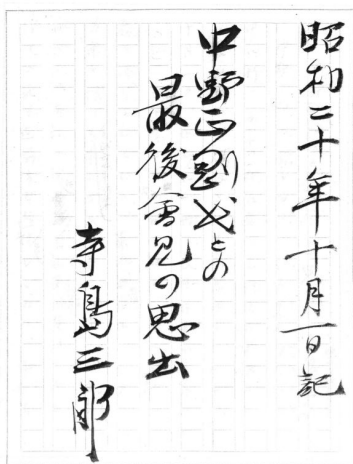 昭和二十年十月一日記
中野正剛氏との
最後會見の思出
寺島三郎